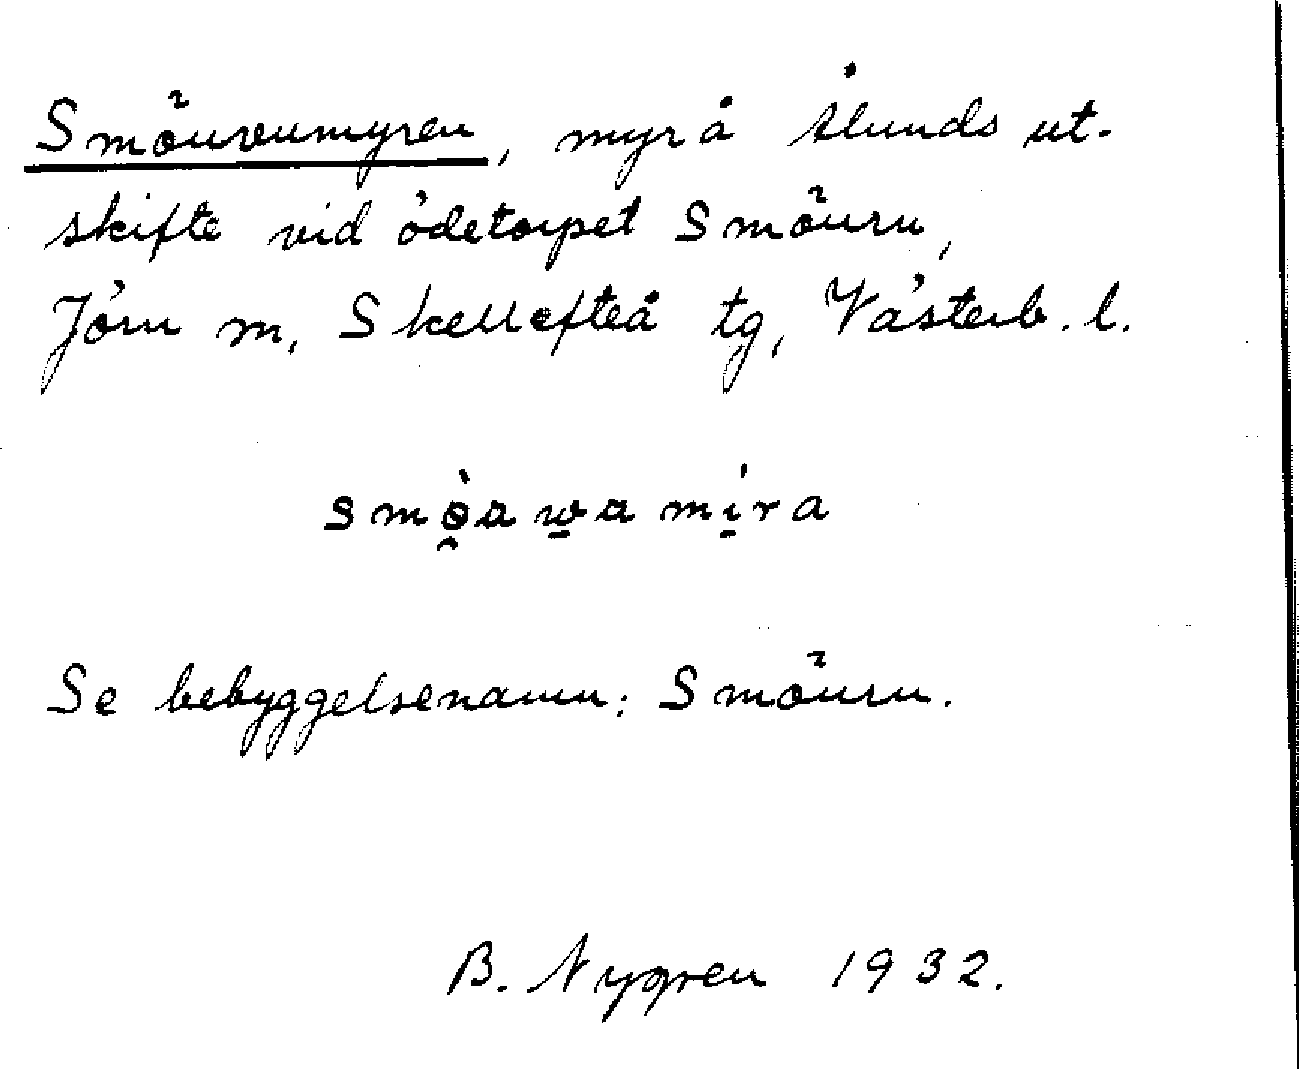 Smöurnmyren, myr å Ålunds ut-
skifte vid ödetorpet Smöurn,
Jörn sn, Skellefteå tg, Västerb. l.
Se bebyggelsenamn: Smöurn.
B. Nygren 1932.